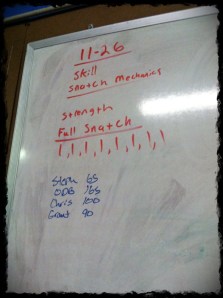 11-26
Skill
Snatch Mechanics
Strength
Full Snatch
1, 1, 1, 1, 1, 1, 1, 1
65
165
Chris 100
90